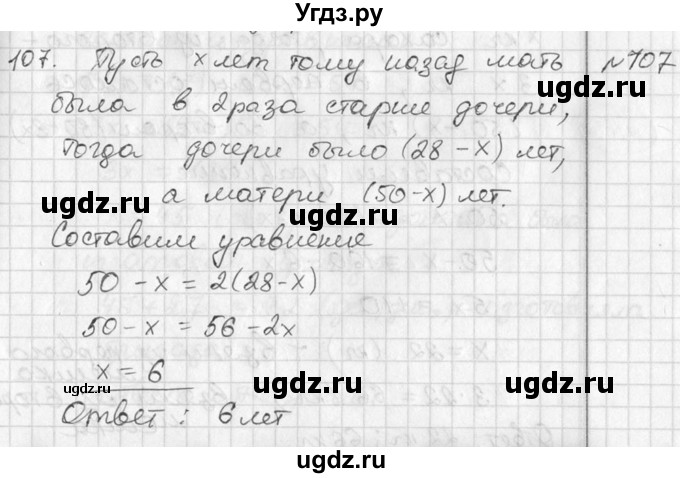 Угдз.ру
107. Пусть x лет тому назад мать №107
была в 2 раза старше дочери,
тогда дочери было (28 - x) лет,
а матери (50-x) лет.
ugdz.ru ugdz.ru ugdz.ru
Составим уравнение
50 - x = 2(28-x)
50 - x = 56 - 2x
x = 6
ugdz.ru ugdz.ru ugdz.ru
Ответ: 6 лет
ugdz.ru